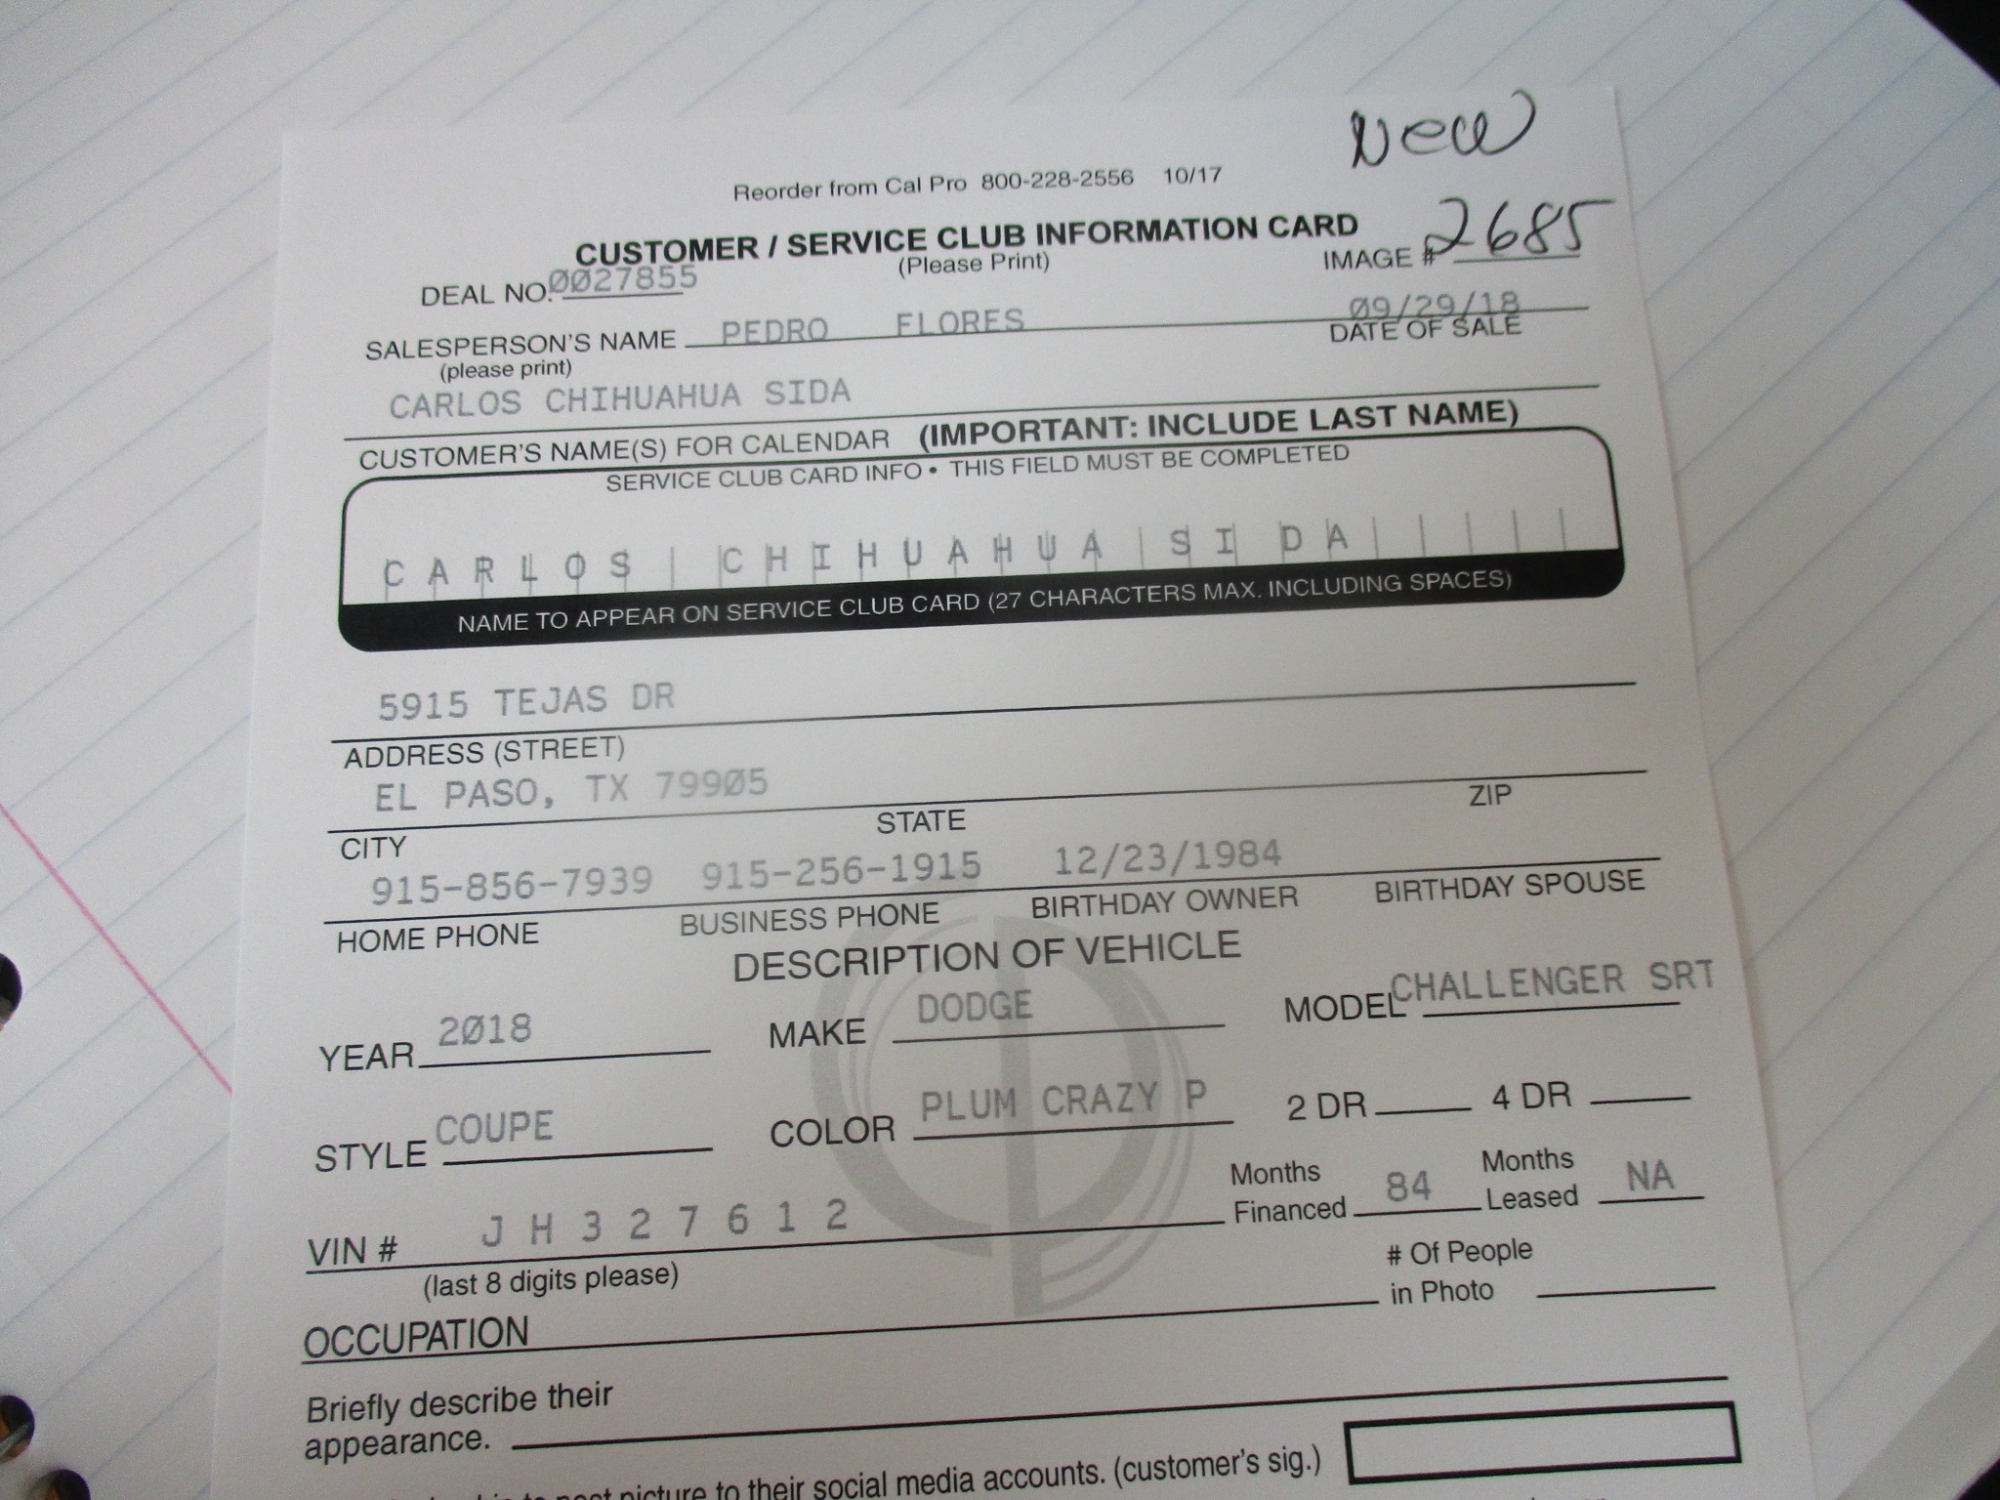 New
Reorder from Cal Pro 800-228-2556 10/17
CUSTOMER / SERVICE CLUB INFORMATION CARD
(Please Print)
IMAGE # 2685
DEAL NO. 0027855
SALESPERSON'S NAME PEDRO FLORES 09/29/18
(please print) DATE OF SALE
CARLOS CHIHUAHUA SIDA
CUSTOMER'S NAME(S) FOR CALENDAR (IMPORTANT: INCLUDE LAST NAME)
SERVICE CLUB CARD INFO • THIS FIELD MUST BE COMPLETED
CARLOS CHIHUAHUA SIDA
NAME TO APPEAR ON SERVICE CLUB CARD (27 CHARACTERS MAX. INCLUDING SPACES)
5915 TEJAS DR
ADDRESS (STREET)
EL PASO, TX 79905
CITY STATE ZIP
915-856-7939 915-256-1915 12/23/1984
HOME PHONE BUSINESS PHONE BIRTHDAY OWNER BIRTHDAY SPOUSE
DESCRIPTION OF VEHICLE
YEAR 2018 MAKE DODGE MODEL CHALLENGER SRT
STYLE COUPE COLOR PLUM CRAZY P 2 DR 4 DR
VIN # J H 3 2 7 6 1 2 Months Financed 84 Months Leased NA
(last 8 digits please)
OCCUPATION # Of People in Photo
Briefly describe their
appearance.
to post picture to their social media accounts. (customer's sig.)